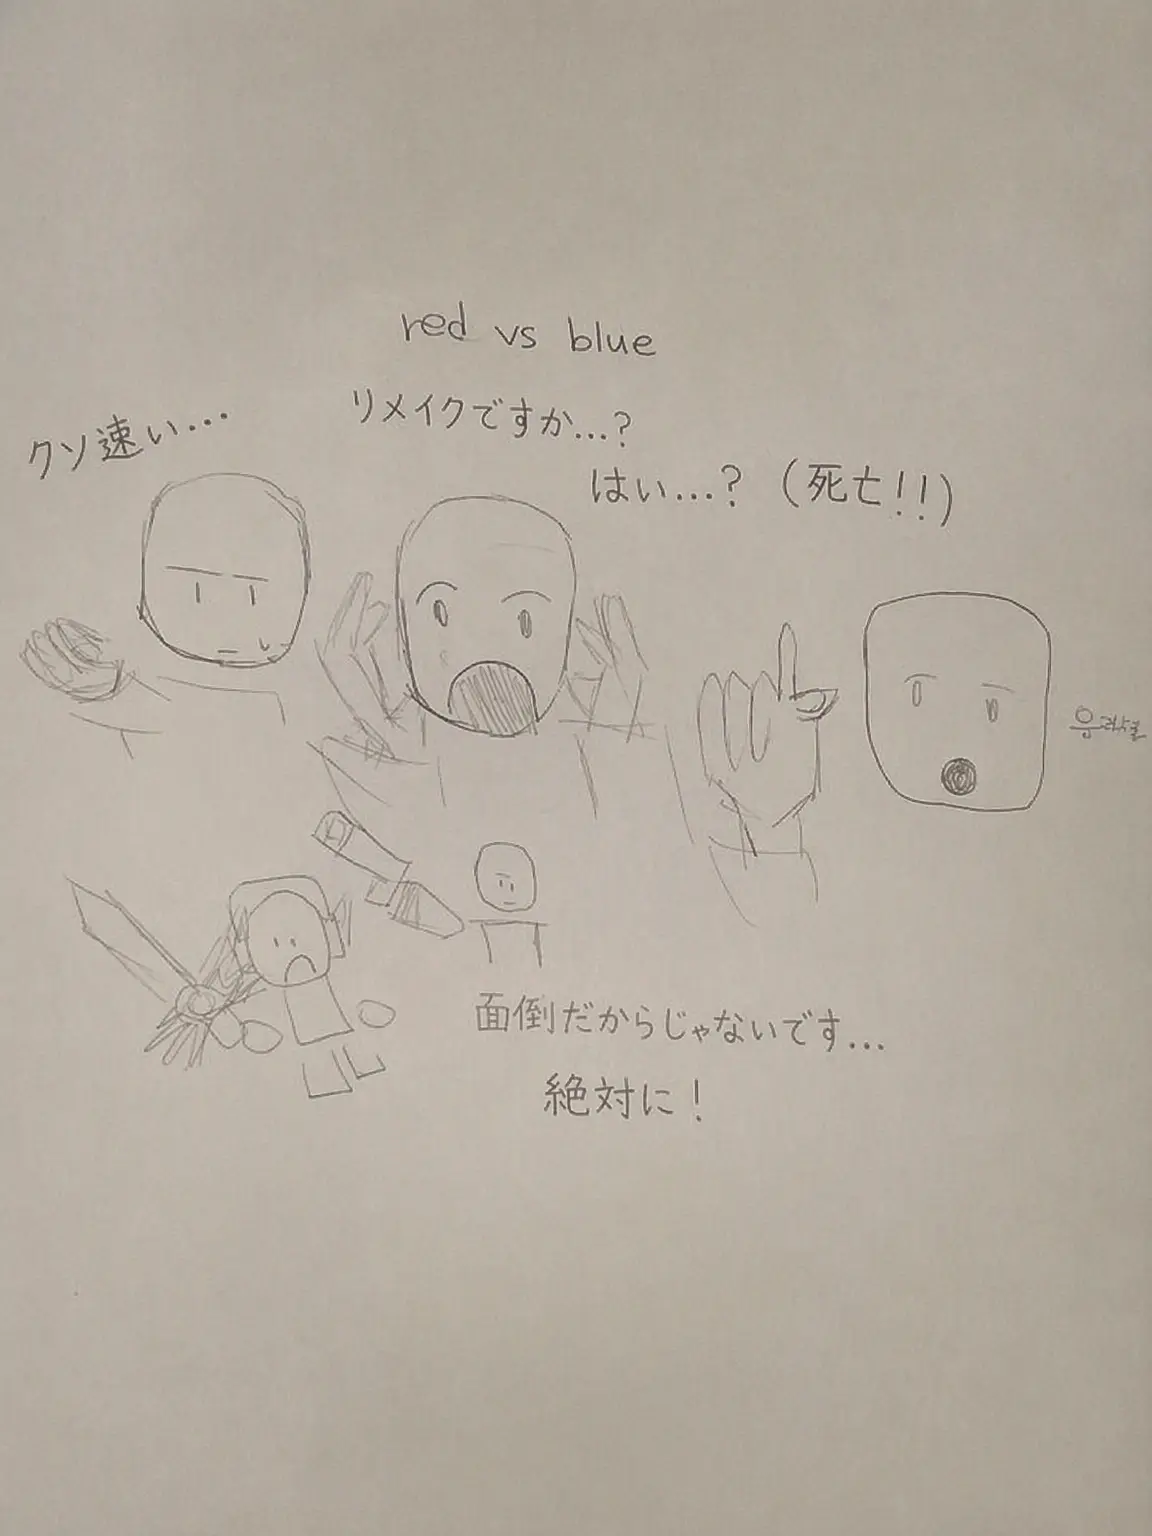 red vs blue
クソ速い...
リメイクですか...?
はい...? (死亡!!)
面倒だからじゃないです...
絶対に!